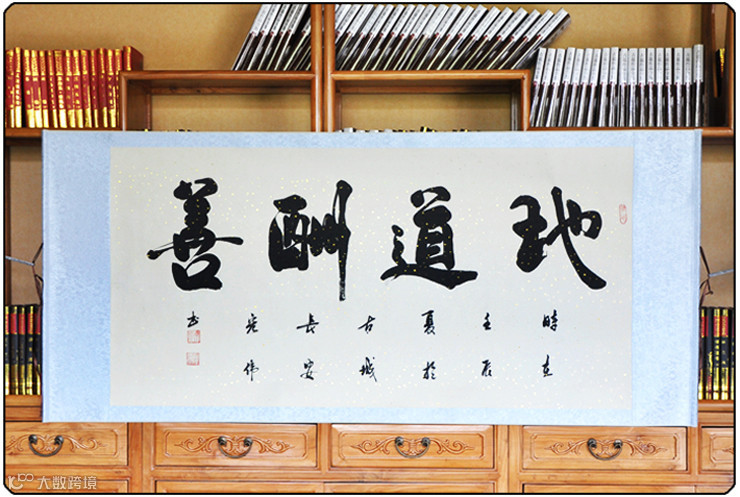 地道酬善
時在
壬辰
夏於
古城
長安
伟
书
大数跨境